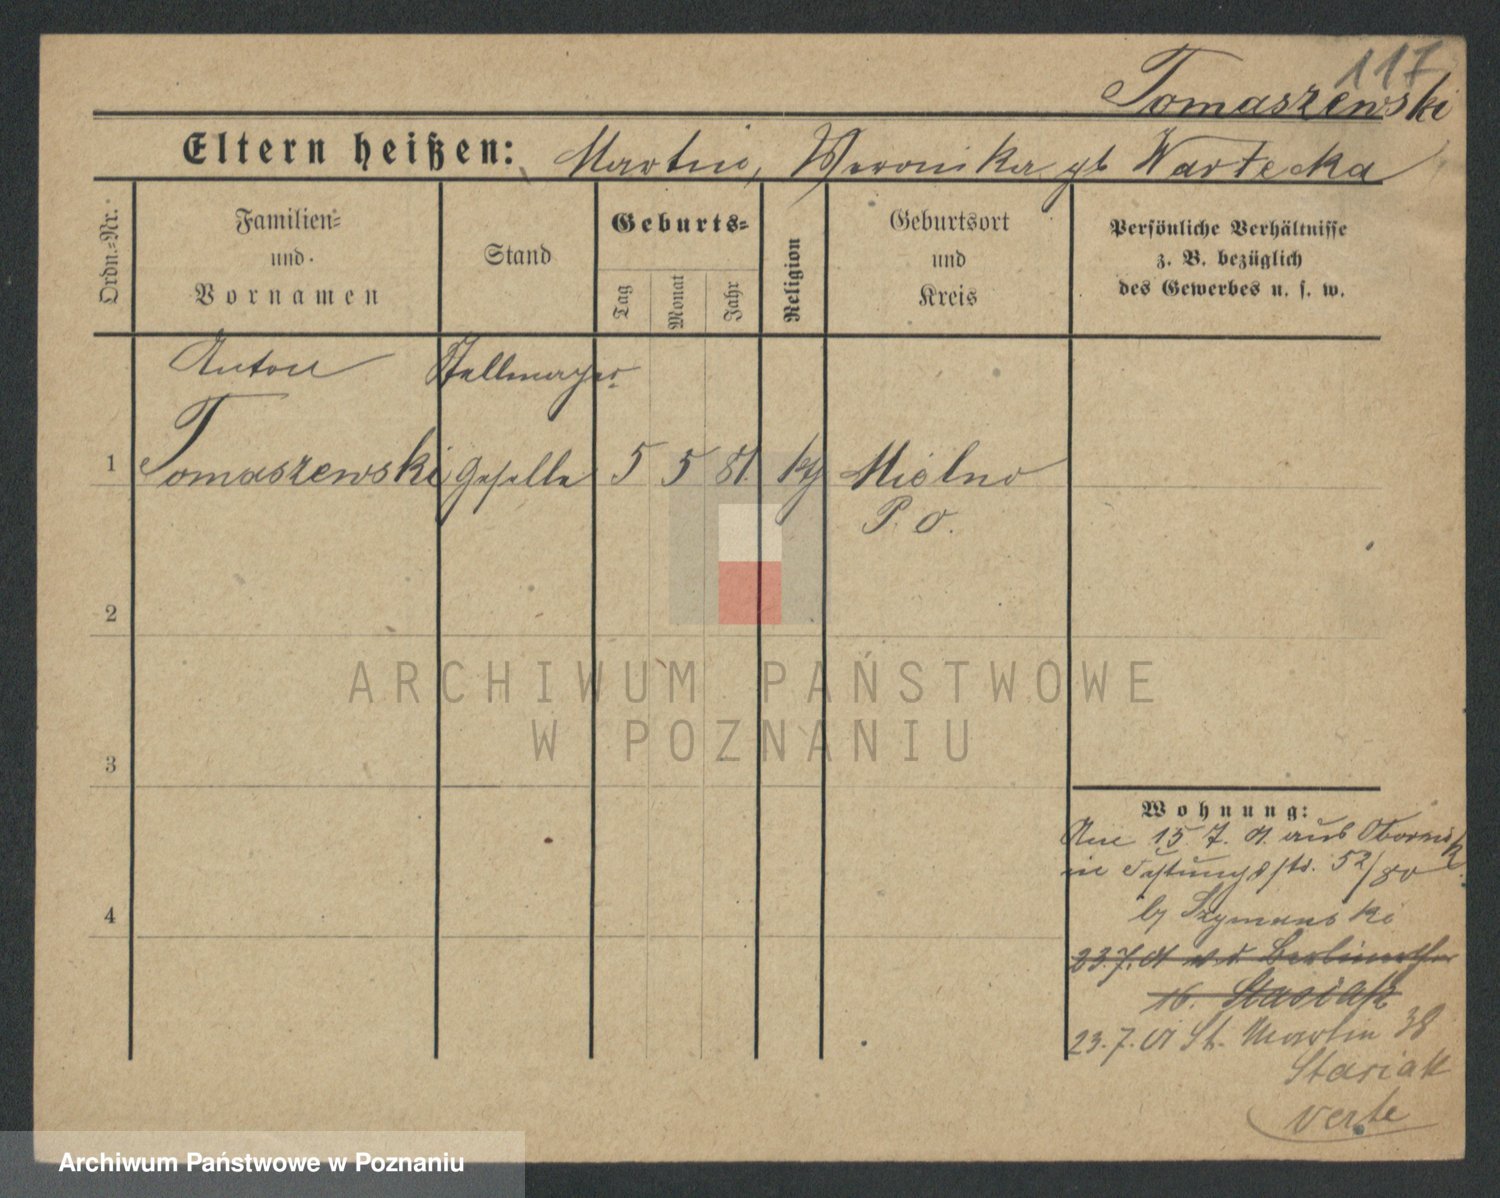 117
Tomaszewski
Eltern heißen: Martin, Weronika gb Wartecka
Ordn.-Nr.
Familien-
und
Vornamen
Stand
Geburts-
Tag
Monat
Jahr
Religion
Geburtsort
und
Kreis
Persönliche Verhältnisse
z. B. bezüglich
des Gewerbes u. s. w.
Anton Stellmacher
1 Tomaszewski Geselle 5 5 81. kth Mielno
P. O.
2
3
4
ARCHIWUM PAŃSTWOWE
W POZNANIU
Wohnung:
Am 15. 7. 01. aus Obornik
in 52/80
b/ Szymanski
23.7.01
16. Stasiak
23.7.01 St. Martin 38
Stasiak
verte
Archiwum Państwowe w Poznaniu